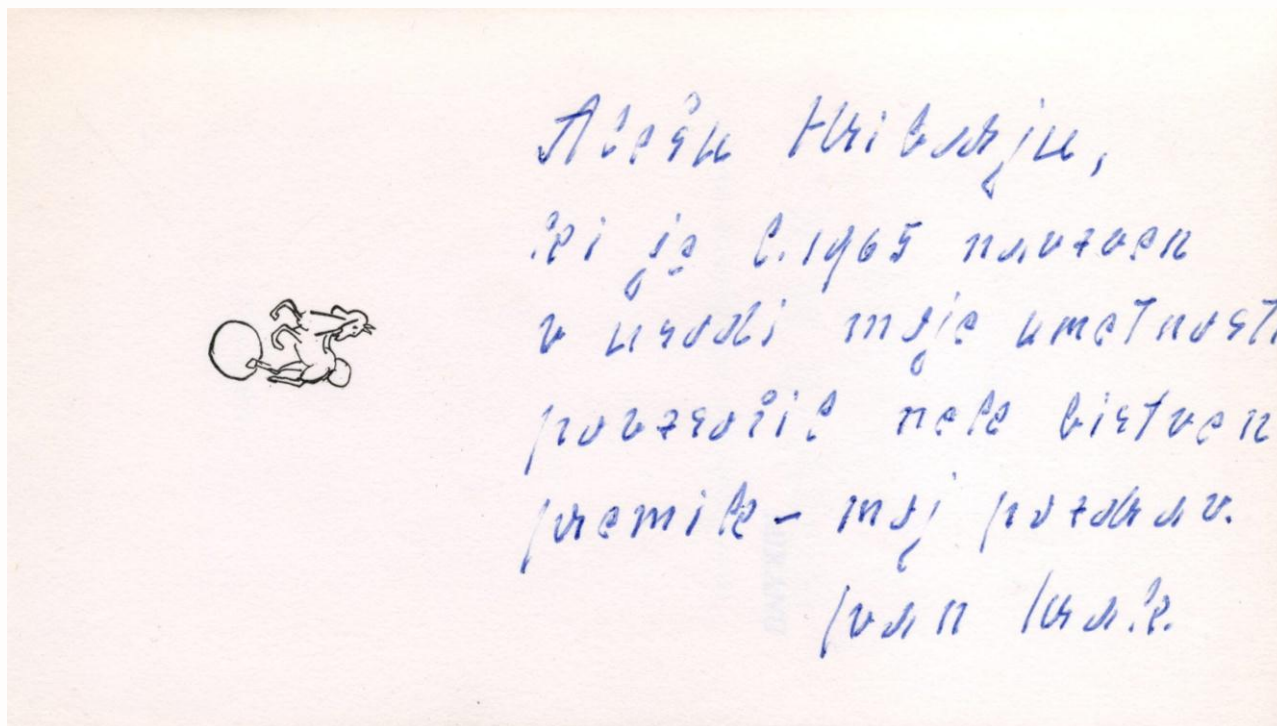 Alešu Hribarju,
ki je l. 1965 navzven
v usodi moje umetnosti
povzročil nek bistven
premik – moj pozdrav.
Ivan Mrak.